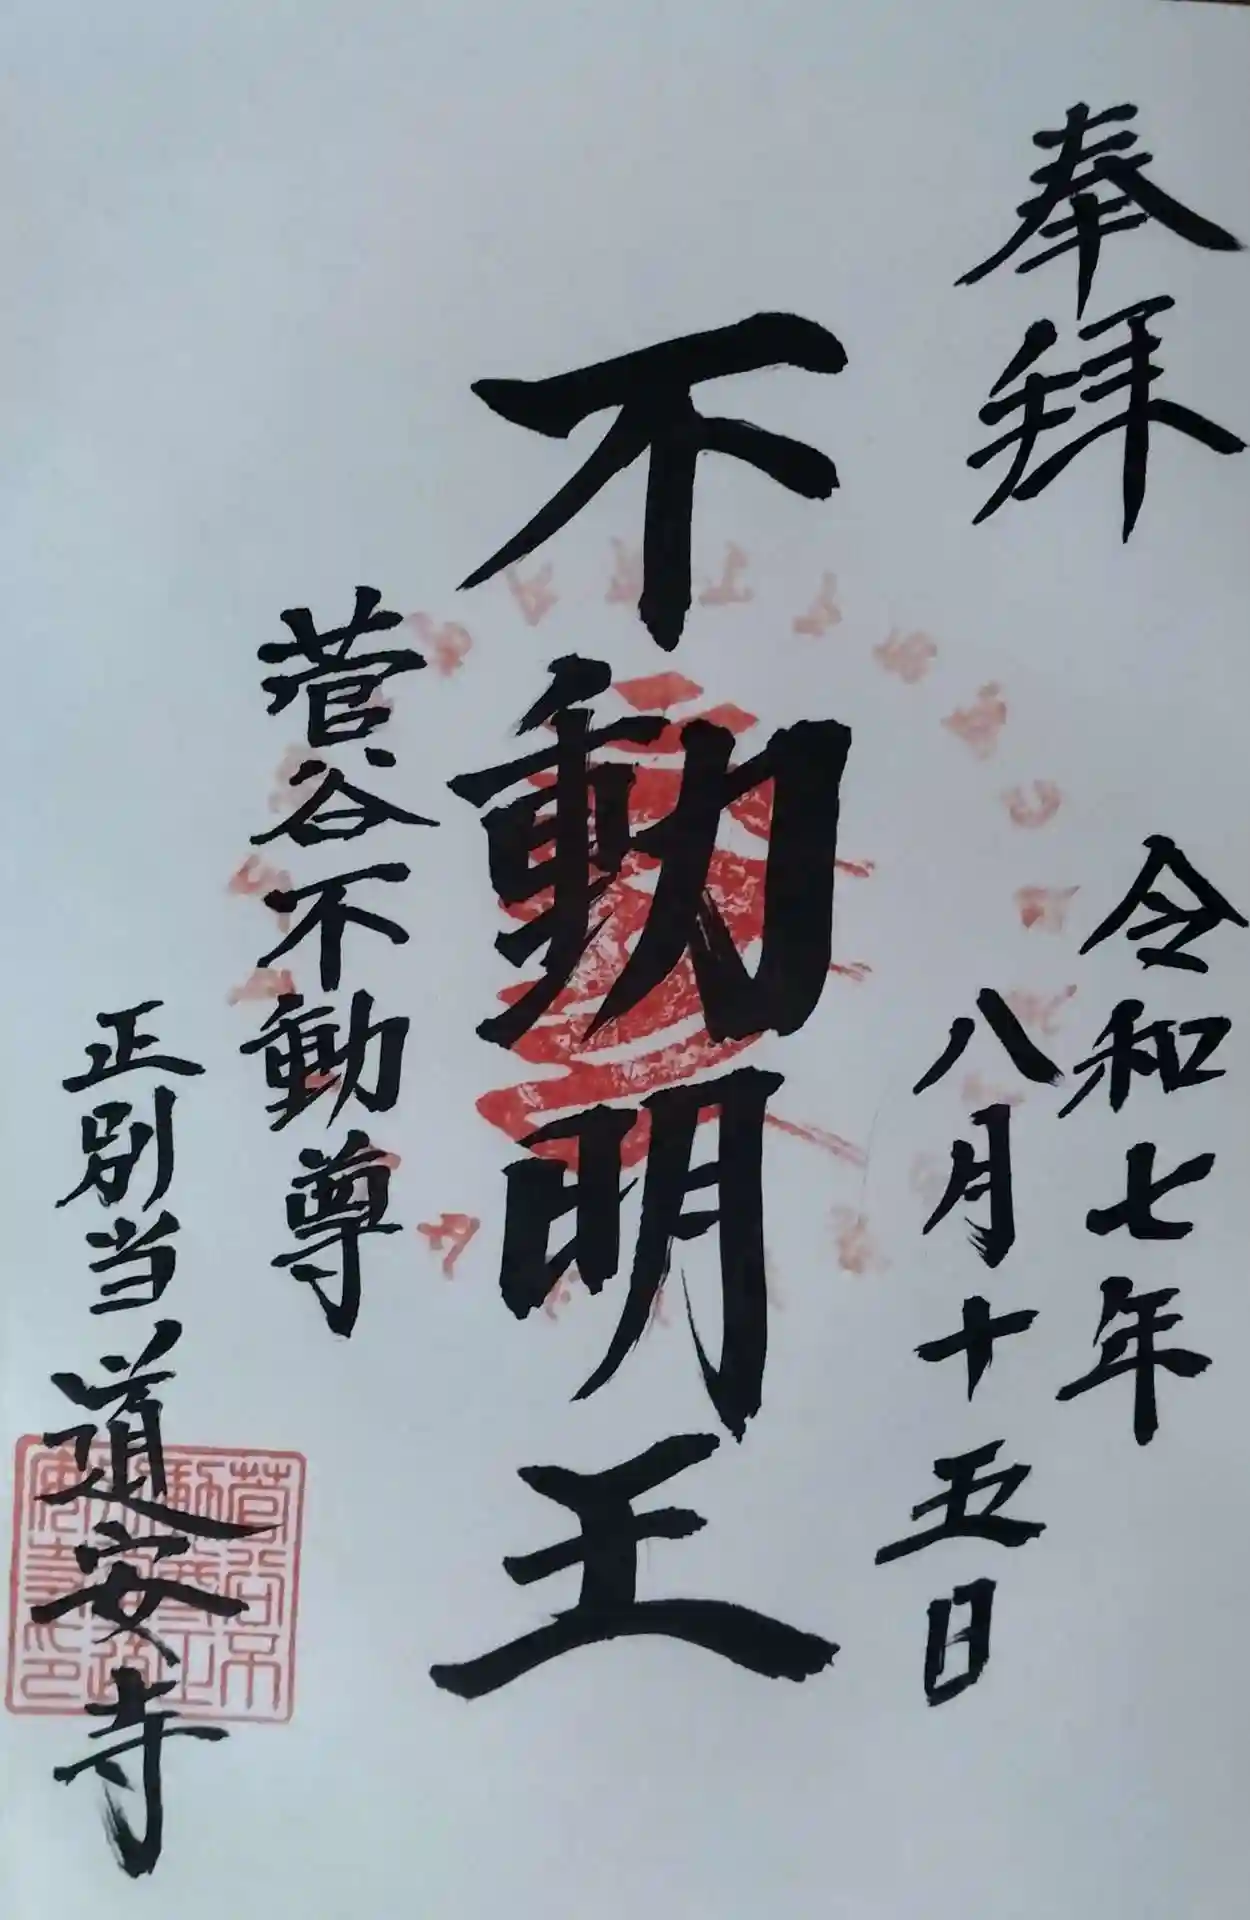 奉拜
令和七年
八月十五日
不動明王
菅谷不動尊
正別当道安寺